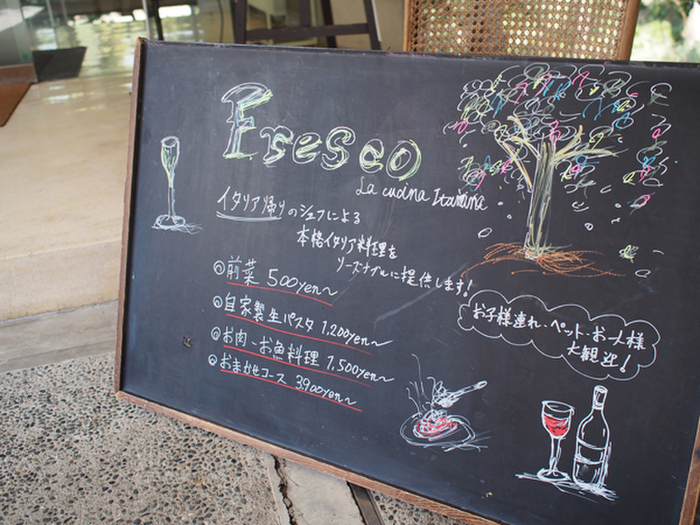 Fresco
La cucina Itariana
イタリア帰りのシェフによる
本格イタリア料理を
リーズナブルに提供します!
前菜 500yen〜
自家製生パスタ 1,200yen〜
お肉・お魚料理 1,500yen〜
おまかせコース 3,900yen〜
お子様連れ・ペット・お一人様
大歓迎!